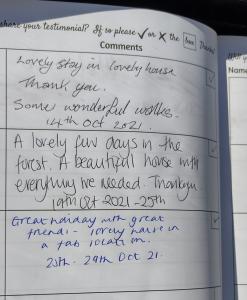 share your testimonial? If so please ✓ or X the box Thanks!
Comments
Name
Lovely stay in lovely house
Thank you.
Some wonderful walks.
14th Oct 2021.
A lovely few days in the
forest. A beautiful house with
everything we needed. Thankyou
19th Oct 2021 - 25th
Great holiday with great
friends - lovely house in
a fab location.
25th - 29th Oct 21.